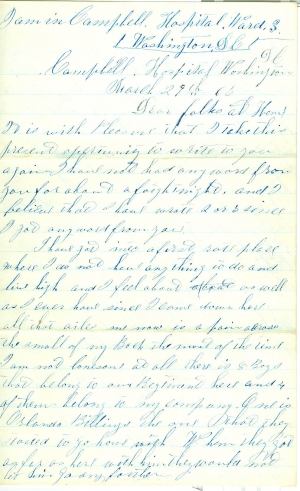 I am in Campbell. Hospital. Ward. 3.
Washington, D C
Campbell. Hospital Washington
D C
March 29th 65
Dear folks at Home
It is with pleasure that I take this
present opertunity to write to you
again I have not had any word from
you for about a forghtnight. and I
believe that I have wrote 2 or 3 since
I got any word from you.
I have got into a first rate place
where I do not have any thing to do and
live high and I feel about as well
as I ever have since I came down here
all that ailes me now is a pain across
the small of my Back the most of the time
I am not lonsom at all there is 8 Boys
that belong to our Regiment here and 4
of them belong to my company. One is
Orlando Billings the one that they
started to go home with When they got
as far as here with him they would not
let him go any further